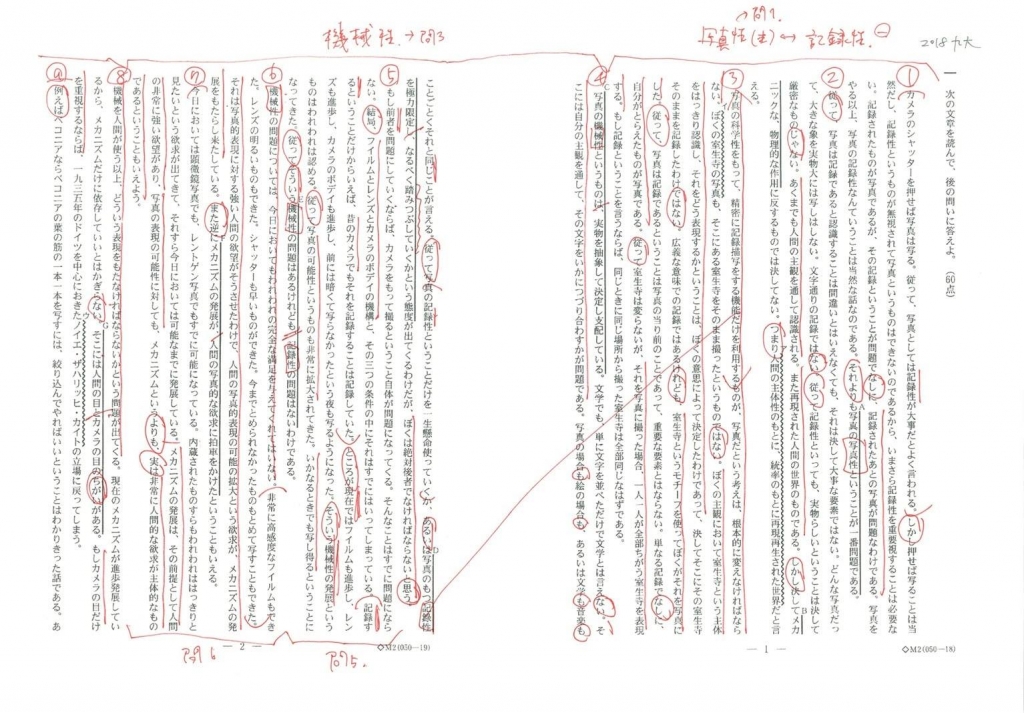 2018 九大
→問1.
写真性(主) ↔ 記録性 ㊀
機械性 → 問3
一 次の文章を読んで、後の問いに答えよ。(60点)
① カメラのシャッターを押せば写真は写る。従って、写真としては記録性が大事だとよく言われる。しかし押せば写ることは当
然だし、記録性というものが無視されて写真というものはできないのであるから、いまさら記録性を重要視することは必要な
い。記録されたものが写真であるが、その記録ということが問題でなしに、記録されたあとの写真が問題なわけである。写真を
やる以上、写真の記録性なんていうことは当然な話なのである。それよりも写真の写真性ということが、一番問題である。
A
② 従って、写真は記録であると認識することは間違いとはいえなくても、それは決して大事な要素ではない。どんな写真だっ
て、大きな象を実物大には写しはしない。文字通りの記録ではない。従って記録性といっても、実物らしいということは決して
厳密なものじゃない。あくまでも人間の主観を通して認識される。また再現された人間の世界のものである。しかし決してメカ
B
ニックな、物理的な作用に反するものでは決してない。つまり人間の主体性のもとに、統率のもとに再現再生された世界だと言
える。
③ 写真の科学性をもって、精密に記録描写をする機能だけを利用するものが、写真だという考えは、根本的に変えなければなら
ない。ぼくの室生寺の写真も、そこにある室生寺をそのまま撮ったというものではない。ぼくの主観において室生寺という
をはっきり認識し、それをどう表現するかということは、ぼくの意思によって決定したわけであって、決してそこにその室生寺
そのままを記録したわけではない。広義な意味での記録ではあるけれども、室生寺というモチーフを使ってぼくがそれを写真に
した。従って、写真は記録であるということは写真の当り前のことであって、重要な要素とはならない。単なる記録でなしに、
自分がとらえたものが写真である。従って室生寺は変らないが、それを写真に撮った場合、一人一人が全部ちがう室生寺を表現
する。もし記録ということを言うならば、同じときに同じ場所から撮った室生寺は全部同じなはずである。
C
④ 写真の機械性というものは、実物を抽象して決定し支配している。文学でも、単に文字を並べただけで文学とは言えない。そ
こには自分の主観を通して、その文字をいかにつづり合わすかが問題である。写真の場合も絵の場合も、あるいは文学も音楽も
— 1 —
◇M2(050—18)
ことごとくそれと同じことが言える。従って写真の記録性ということだけを一生懸命使っていくか、あるいは写真のもつ記録性
D
を極力限定し、なるべく踏みつぶしていくかという態度が出てくるわけだが、ぼくは絶対後者でなければならないと思う。
⑤ もし前者を問題にしていくならば、カメラをもって撮るということ自体が問題になってくる。そんなことはすでに問題になら
ない。結局、フイルムとレンズとカメラのボデイの機構と、その三つの条件の中にそれはすでにはいってしまっている。記録す
るということだけからいえば、昔のカメラでもそれを記録することは記録していた。ところが現在ではフイルムも進歩し、レン
ズも進歩し、カメラのボデイも進歩し、前には暗くて写らなかったという夜も写るようになった。そういう機械性の発展という
ものはわれわれは認める。従って写真の可能性というものも非常に拡大されてきた。いかなるときでも写し得るということに
E
なってきた。従ってそういう機械性の問題はあるけれども、記録性の問題はないわけである。
⑥ 機械性の問題については、今日においてもわれわれの完全な満足を与えてくれてはいない。非常に高感度なフイルムもでき
た。レンズの明るいものもできた。シャッターも早いものができた。今までとめられなかったものもとめて写すこともできた。
それは写真的表現に対する強い人間の欲望がそうさせたわけで、人間の写真的表現の可能の拡大という欲求が、メカニズムの発
展をもたらし来たしている。また逆にメカニズムの発展が、人間の写真的な欲求に拍車をかけたということもいえる。
⑦ 今日においては顕微鏡写真でも、レントゲン写真でもすでに可能になっている。内蔵されたものすらもわれわれははっきりと
見たいという欲求が出てきて、それすら今日においては可能なまでに発展している。メカニズムの発展は、その前提として人間
の非常に強い欲望があり、写真の表現の可能性に対しても、メカニズムというよりも、実は非常に人間的な欲求が主体的なもの
であるということもいえよう。
⑧ 機械を人間が使う以上、どういう表現をもたなければならないかという問題が出てくる。現在のメカニズムが進歩発展してい
るから、メカニズムだけに依存していいとはかぎらない。そこには人間の目とカメラの目のちがいがある。もしカメラの目だけ
G
を重視するならば、一九三五年のドイツを中心におきたノイエ・ザハリッヒカイトの立場に戻ってしまう。
⑨ 例えばベコニアならベコニアの葉の筋の一本一本を写すには、絞り込んでやればいいということはわかりきった話である。あ
— 2 —
◇M2(050—19)
問5.
問6